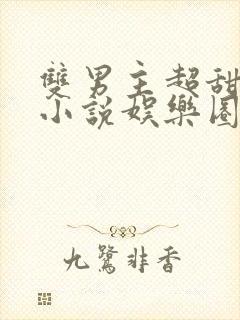 雙男主超甜
小說娛樂圈
九鷺非香